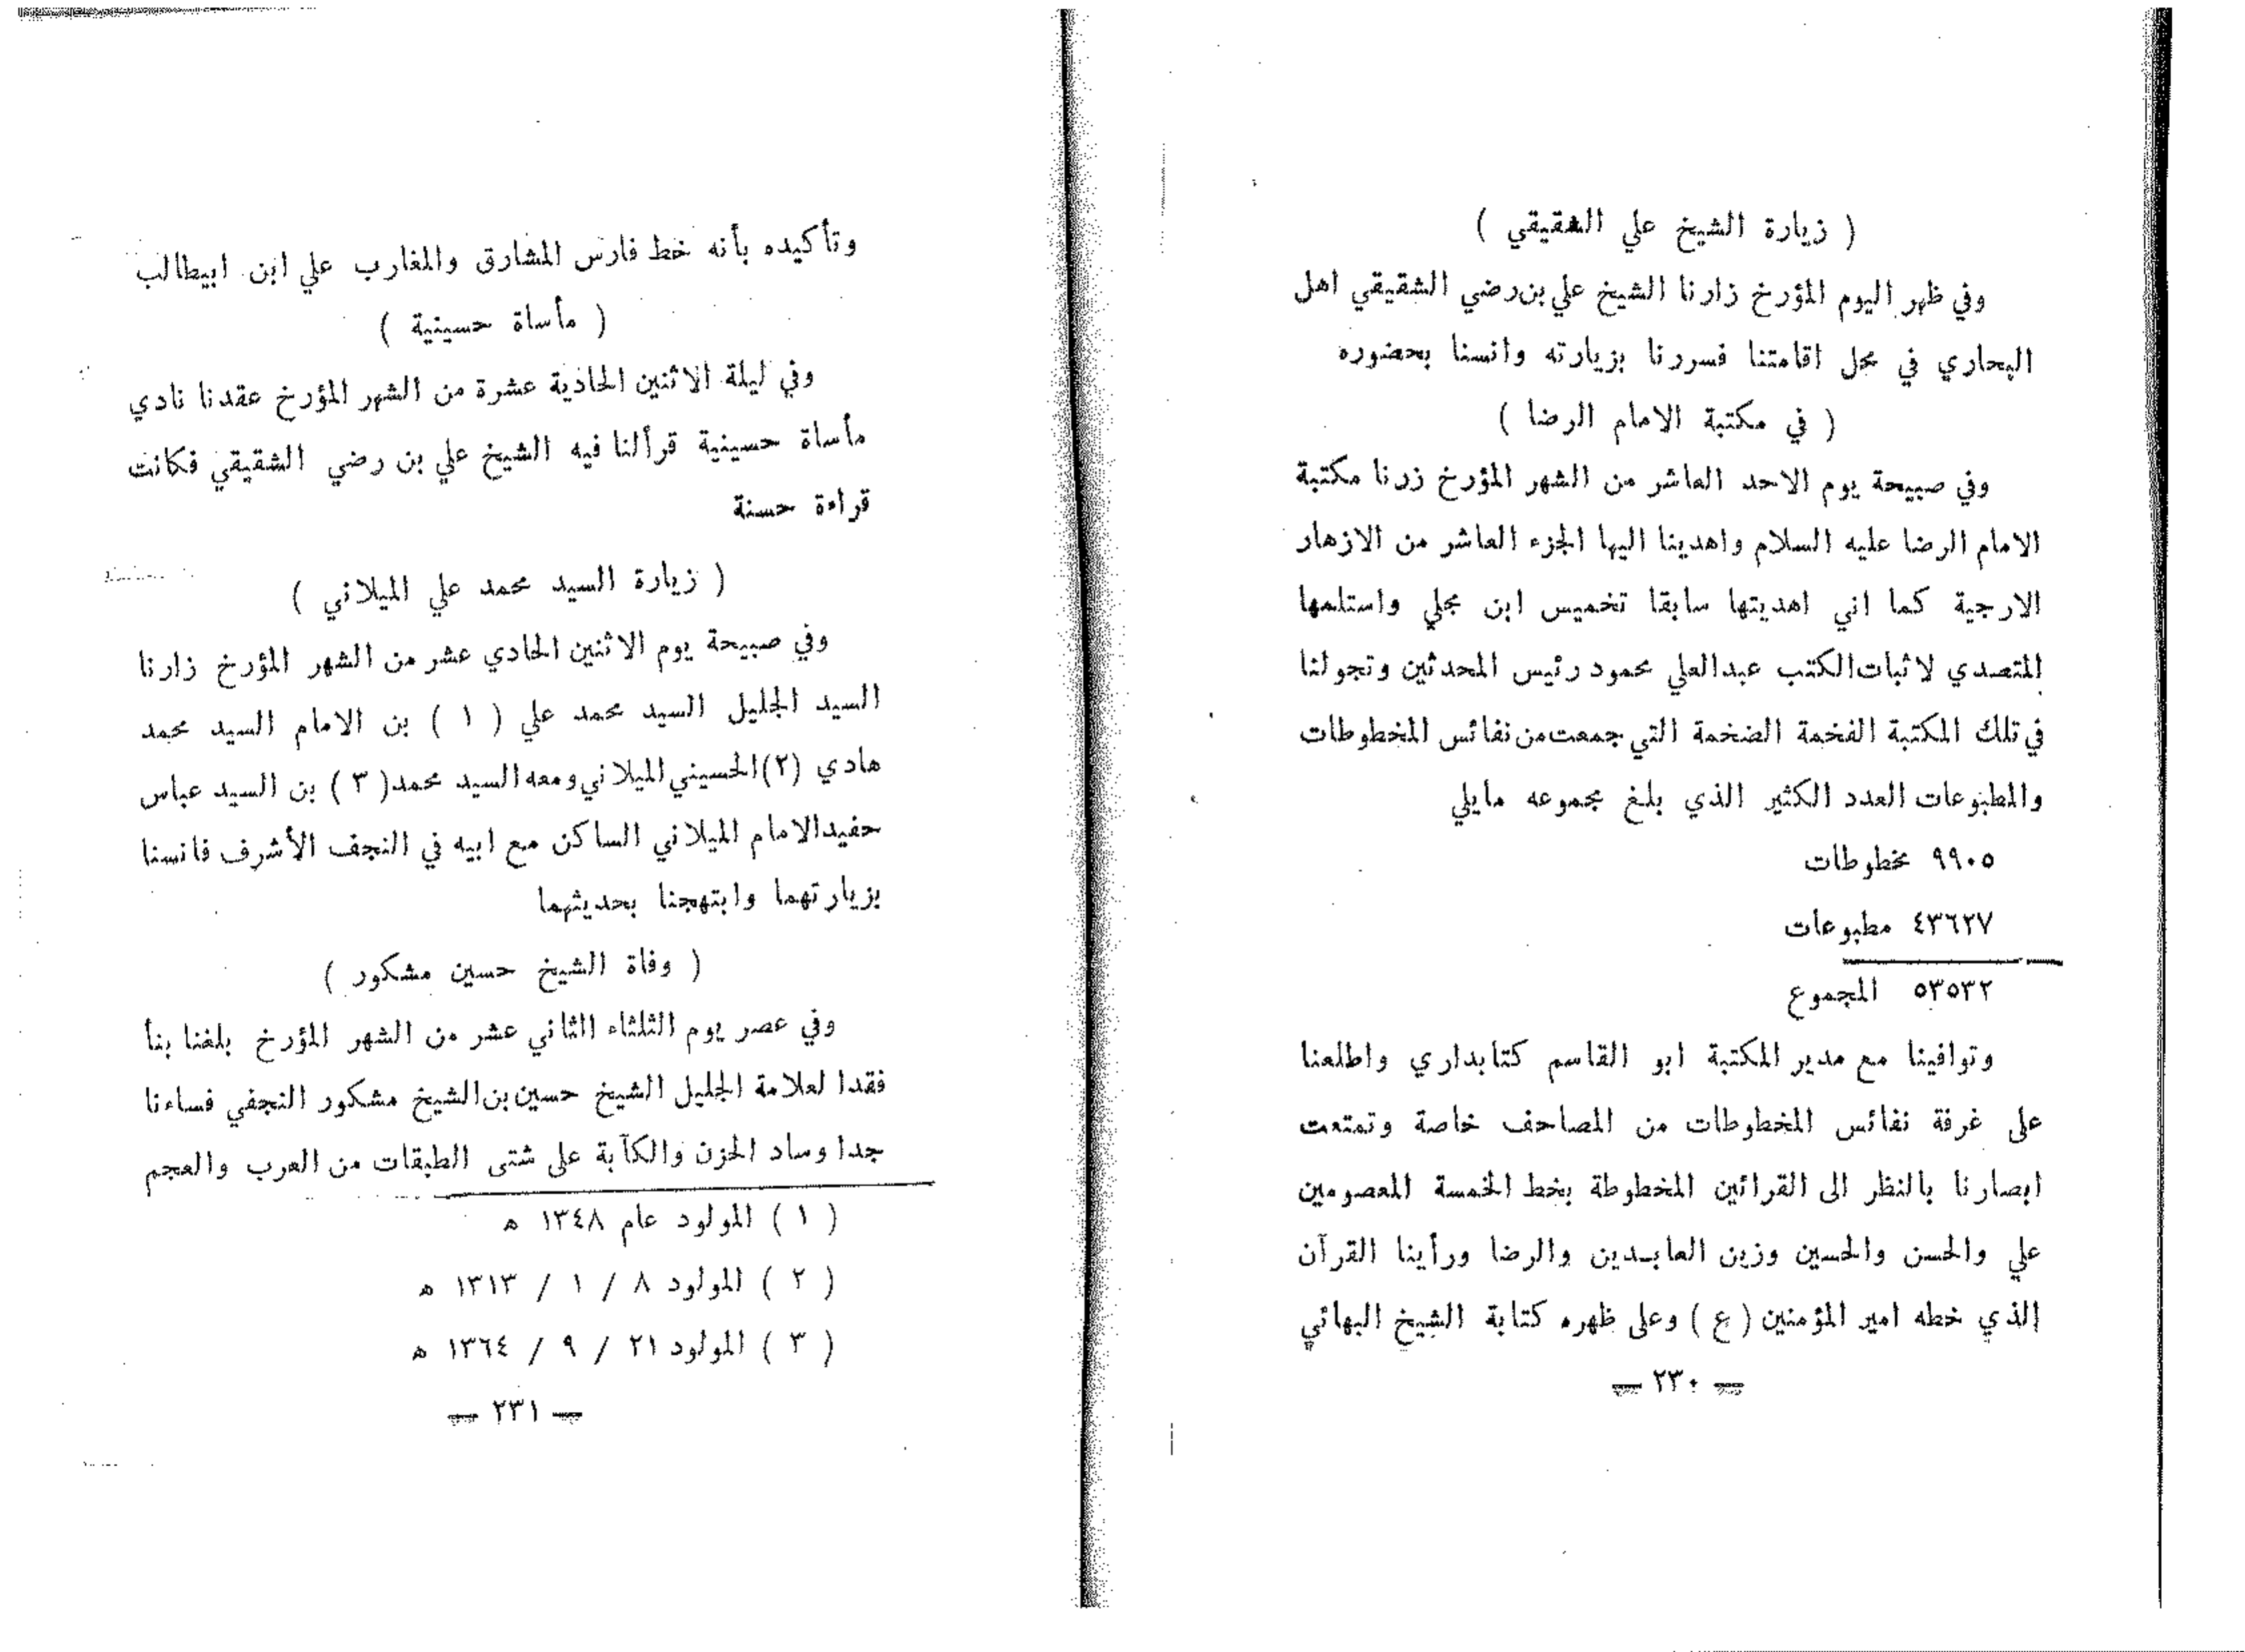 ( زيارة الشيخ علي الشقيقي )
وفي ظهر اليوم المؤرخ زارنا الشيخ علي بن رضي الشقيقي اهل
البحاري في محل اقامتنا فسررنا بزيارته وانسنا بحضوره
( في مكتبة الامام الرضا )
وفي صبيحة يوم الاحد العاشر من الشهر المؤرخ زرنا مكتبة
الامام الرضا عليه السلام واهدينا اليها الجزء العاشر من الازهار
الارجية كما اني اهديتها سابقا تخميس ابن مجلي واستلمها
المتصدي لاثبات الكتب عبدالعلي محمود رئيس المحدثين وتجولنا
في تلك المكتبة الفخمة الضخمة التي جمعت من نفائس المخطوطات
والمطبوعات العدد الكثير الذي بلغ مجموعه مايلي
٩٩٠٥ مخطوطات
٤٣٦٢٧ مطبوعات
٥٣٥٣٢ المجموع
وتوافينا مع مدير المكتبة ابو القاسم كتابداري واطلعنا
على غرفة نفائس المخطوطات من المصاحف خاصة وتمتعت
ابصارنا بالنظر الى القرائين المخطوطة بخط الخمسة المعصومين
علي والحسن والحسين وزين العابدين والرضا ورأينا القرآن
الذي خطه امير المؤمنين ( ع ) وعلى ظهره كتابة الشيخ البهائي
— ٢٣٠ —
وتأكيده بأنه خط فارس المشارق والمغارب علي ابن ابيطالب
( مأساة حسينية )
وفي ليلة الاثنين الحادية عشرة من الشهر المؤرخ عقدنا نادي
مأساة حسينية قرألنا فيه الشيخ علي بن رضي الشقيقي فكانت
قراءة حسنة
( زيارة السيد محمد علي الميلاني )
وفي صبيحة يوم الاثنين الحادي عشر من الشهر المؤرخ زارنا
السيد الجليل السيد محمد علي ( ١ ) بن الامام السيد محمد
هادي (٢) الحسيني الميلاني ومعه السيد محمد ( ٣ ) بن السيد عباس
حفيدالامام الميلاني الساكن مع ابيه في النجف الأشرف فانسنا
بزيارتهما وابتهجنا بحديثهما
( وفاة الشيخ حسين مشكور )
وفي عصر يوم الثلثاء الثاني عشر من الشهر المؤرخ بلغنا بنأ
فقدا لعلامة الجليل الشيخ حسين بن الشيخ مشكور النجفي فساءنا
جدا وساد الحزن والكآبة على شتى الطبقات من العرب والعجم
( ١ ) المولود عام ١٣٤٨ ه
( ٢ ) المولود ٨ / ١ / ١٣١٣ ه
( ٣ ) المولود ٢١ / ٩ / ١٣٦٤ ه
— ٢٣١ —